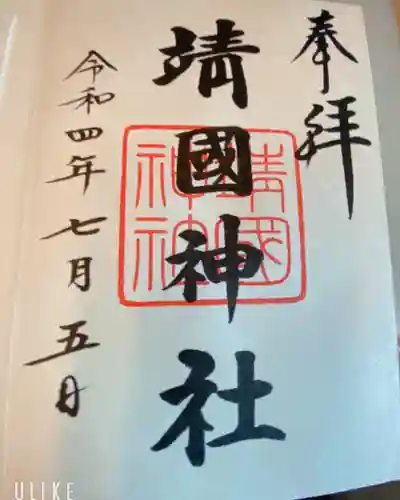 奉拝
靖國神社
靖國神社
令和四年七月五日
ULIKE